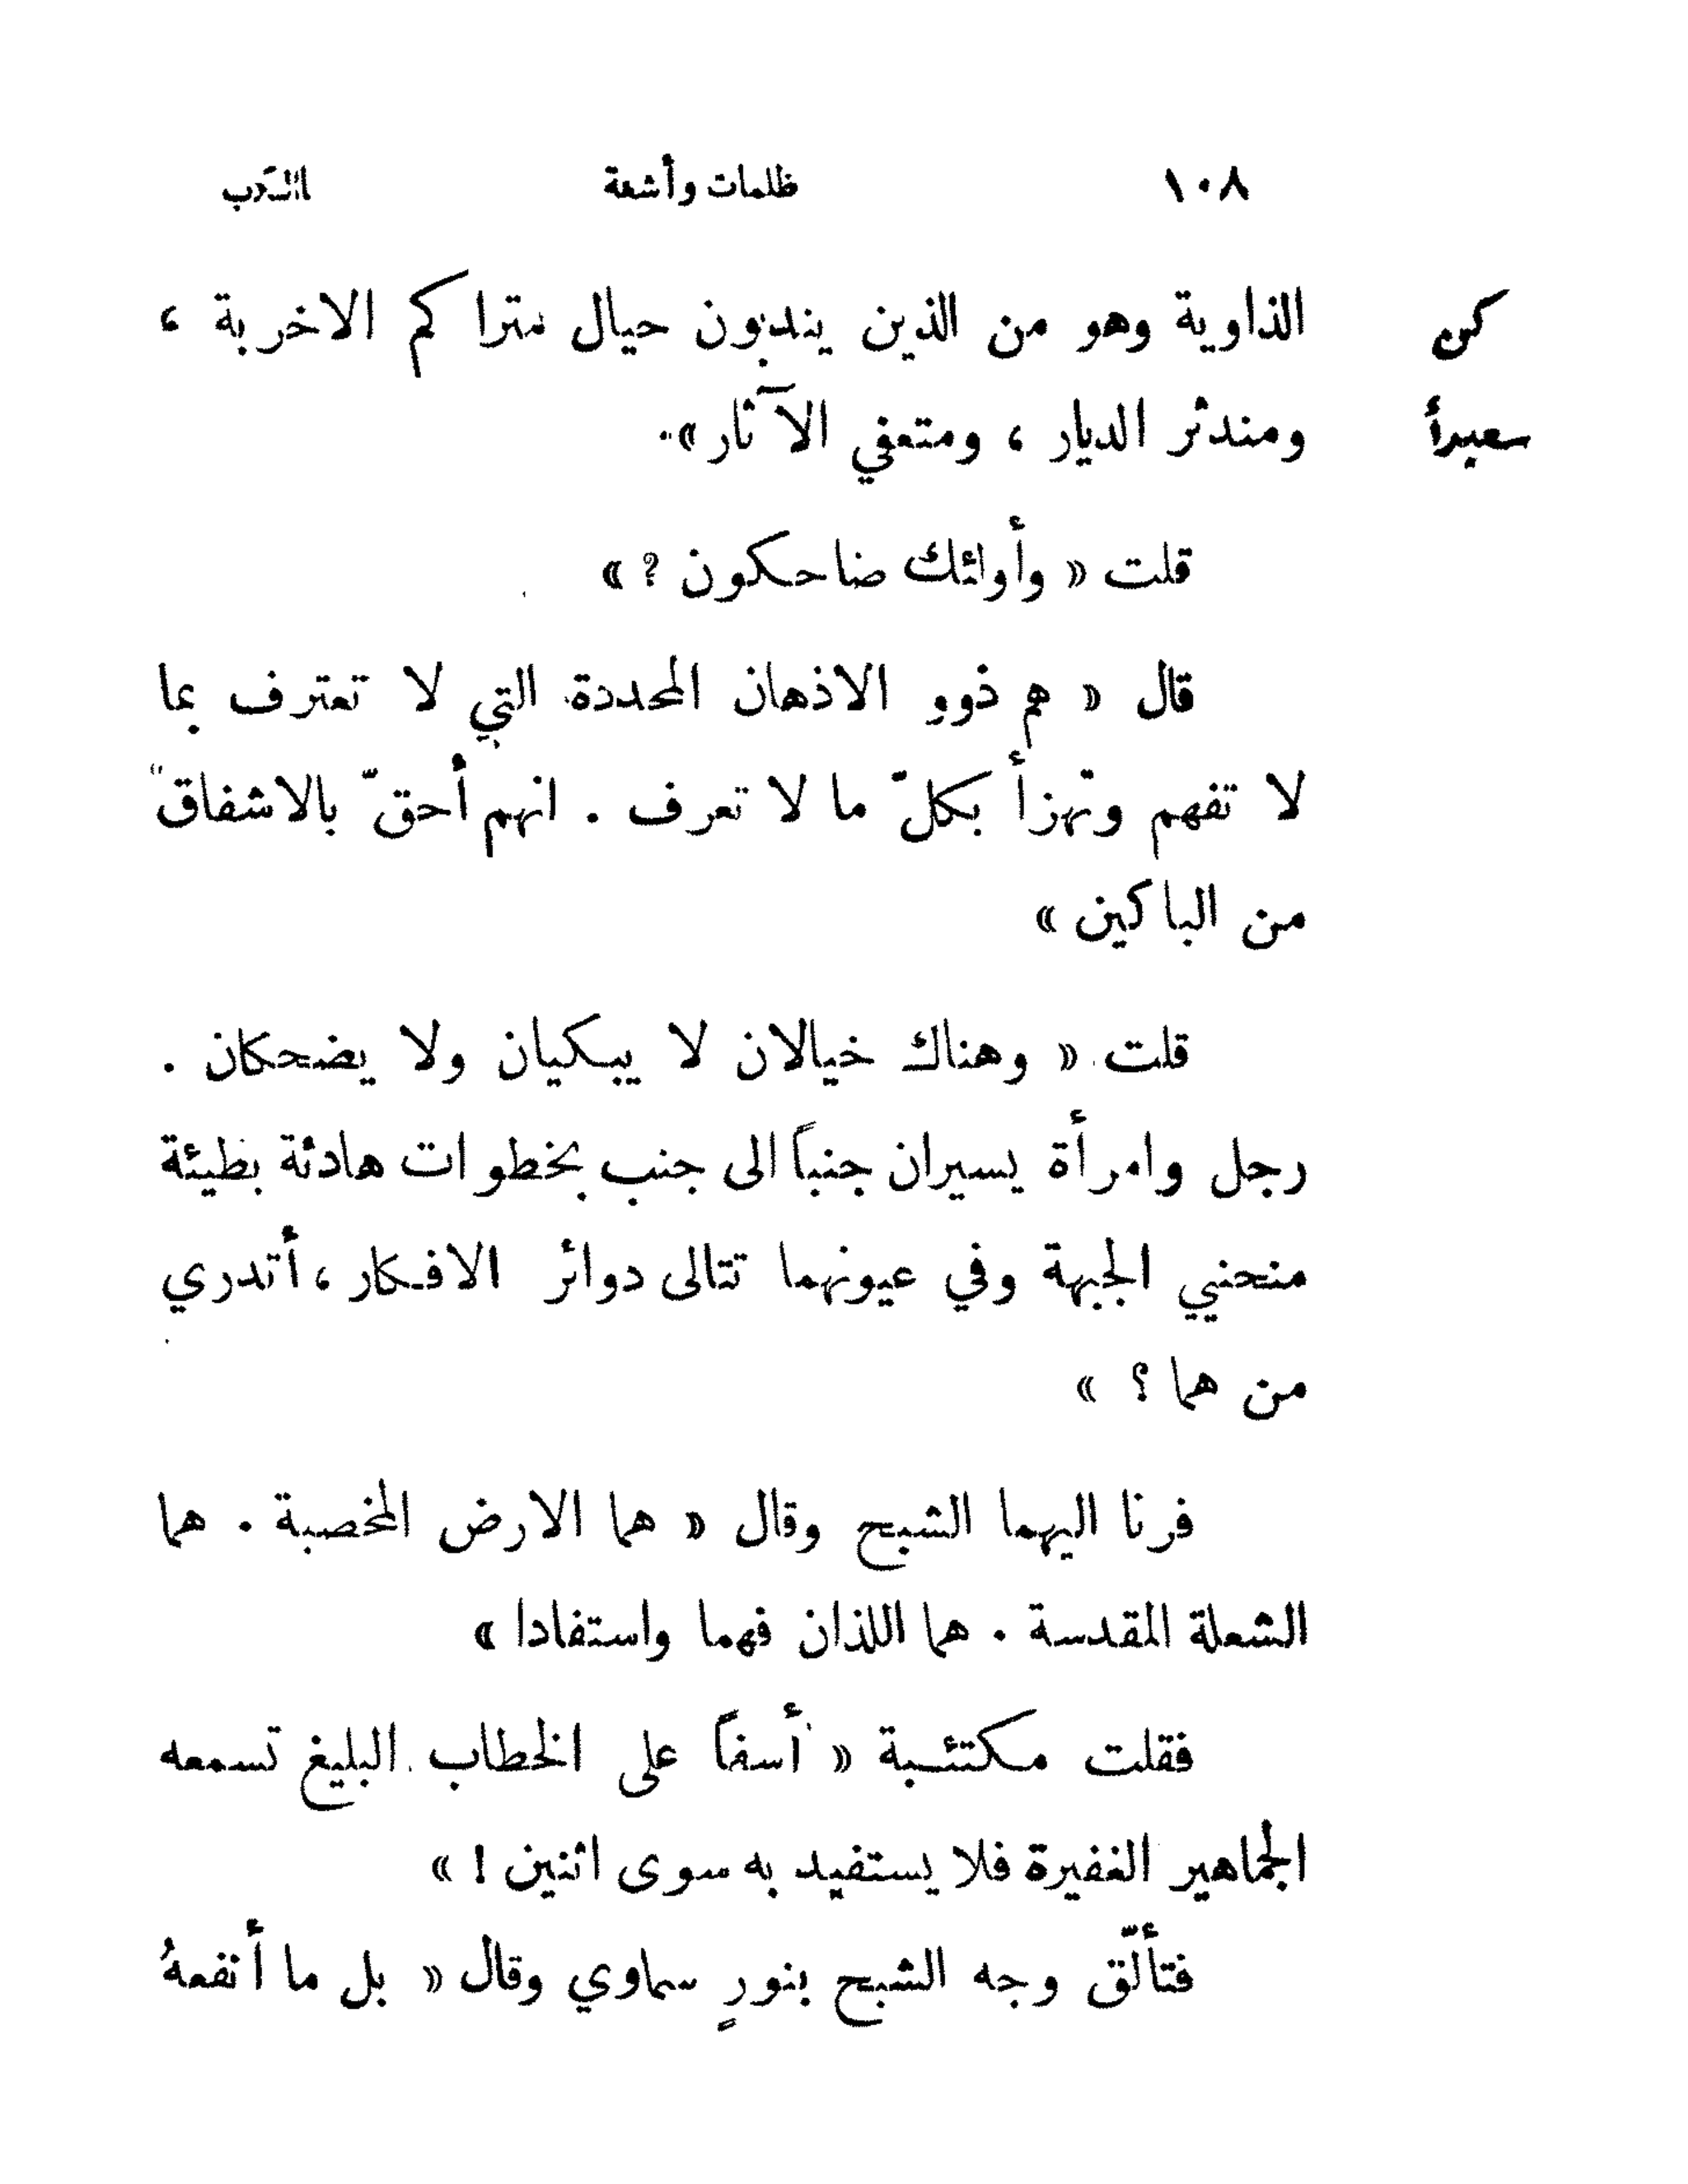 ١٠٨ ظلمات وأشعة
كن
سعيداً
الذاوية وهو من الذين يندبون حيال متراكم الاخربة ،
ومندثر الديار ، ومتعفي الآثار».
قلت « وأولئك ضاحكون ? »
قال « هم ذوو الاذهان المحددة التي لا تعترف بما
لا تفهم وتهزأ بكلّ ما لا تعرف . انهم أحقّ بالاشفاق
من الباكين »
قلت « وهناك خيالان لا يبكيان ولا يضحكان .
رجل وامرأة يسيران جنباً الى جنب بخطوات هادئة بطيئة
منحنيي الجبهة وفي عيونهما تتالى دوائر الافكار ، أتدري
من هما ؟ »
فرنا اليهما الشبح وقال « هما الارض المخصبة . هما
الشعلة المقدسة . هما اللذان فهما واستفادا »
فقلت مكتئبة « أسفاً على الخطاب البليغ تسمعه
الجماهير الغفيرة فلا يستفيد به سوى اثنين ! »
فتألّق وجه الشبح بنورٍ سماوي وقال « بل ما أنفعهُ